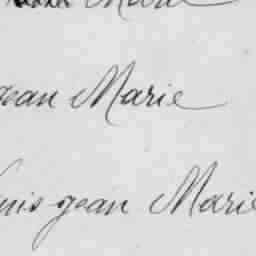 Marie
jean Marie
Louis jean Marie